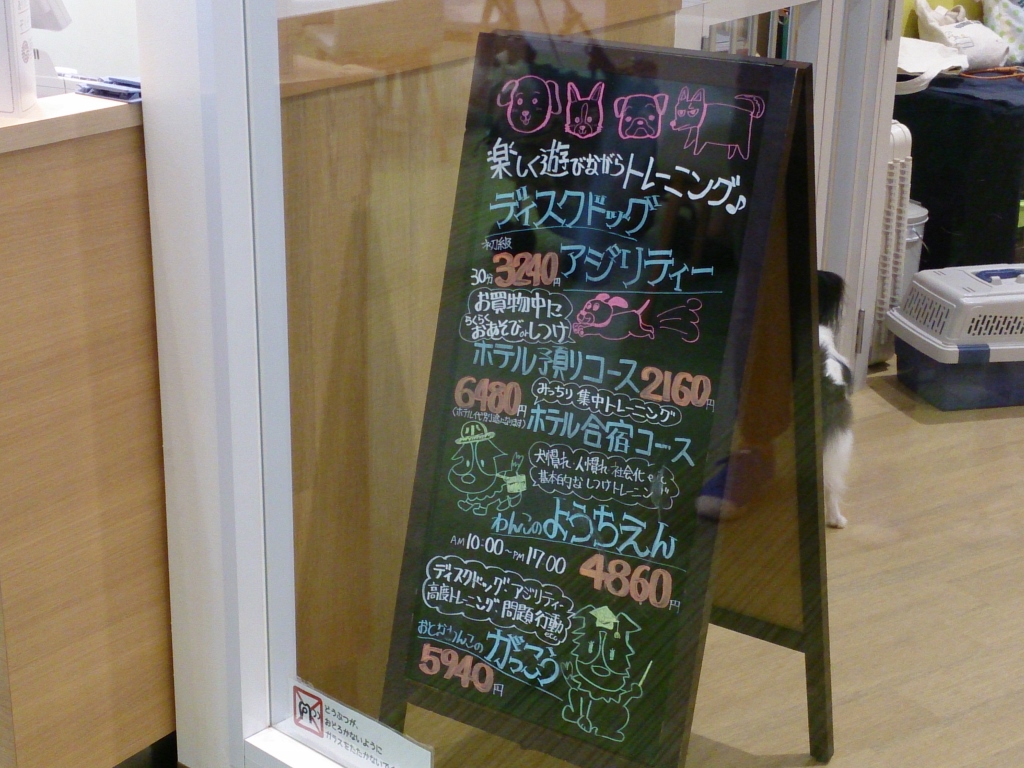 楽しく遊びながらトレーニング♪
ディスクドッグ
初級
30分 3240円 アジリティー
お買物中に
らくらく
おあそびorしつけ
ホテル予預りコース 2160円
6480円 みっちり集中トレーニング
ホテル合宿コース
犬慣れ・人慣れ・社会化 etc.
基本的なしつけトレーニング
わんこのようちえん
AM10:00~PM17:00
4860円
ディスクドッグ・アジリティー
高度トレーニング・問題行動
etc.
おとなわんこの がっこう
5940円
どうぶつが、
おどろかないように
ガラスをたたかないで